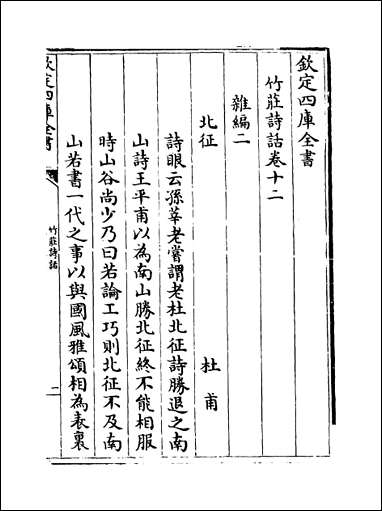 欽定四庫全書
竹莊詩話卷十二
雜編二
北征 杜甫
詩眼云孫莘老嘗謂老杜北征詩勝退之南
山詩王平甫以為南山勝北征終不能相服
時山谷尚少乃曰若論工巧則北征不及南
山若書一代之事以與國風雅頌相為表裏
欽定四庫全書
竹莊詩話